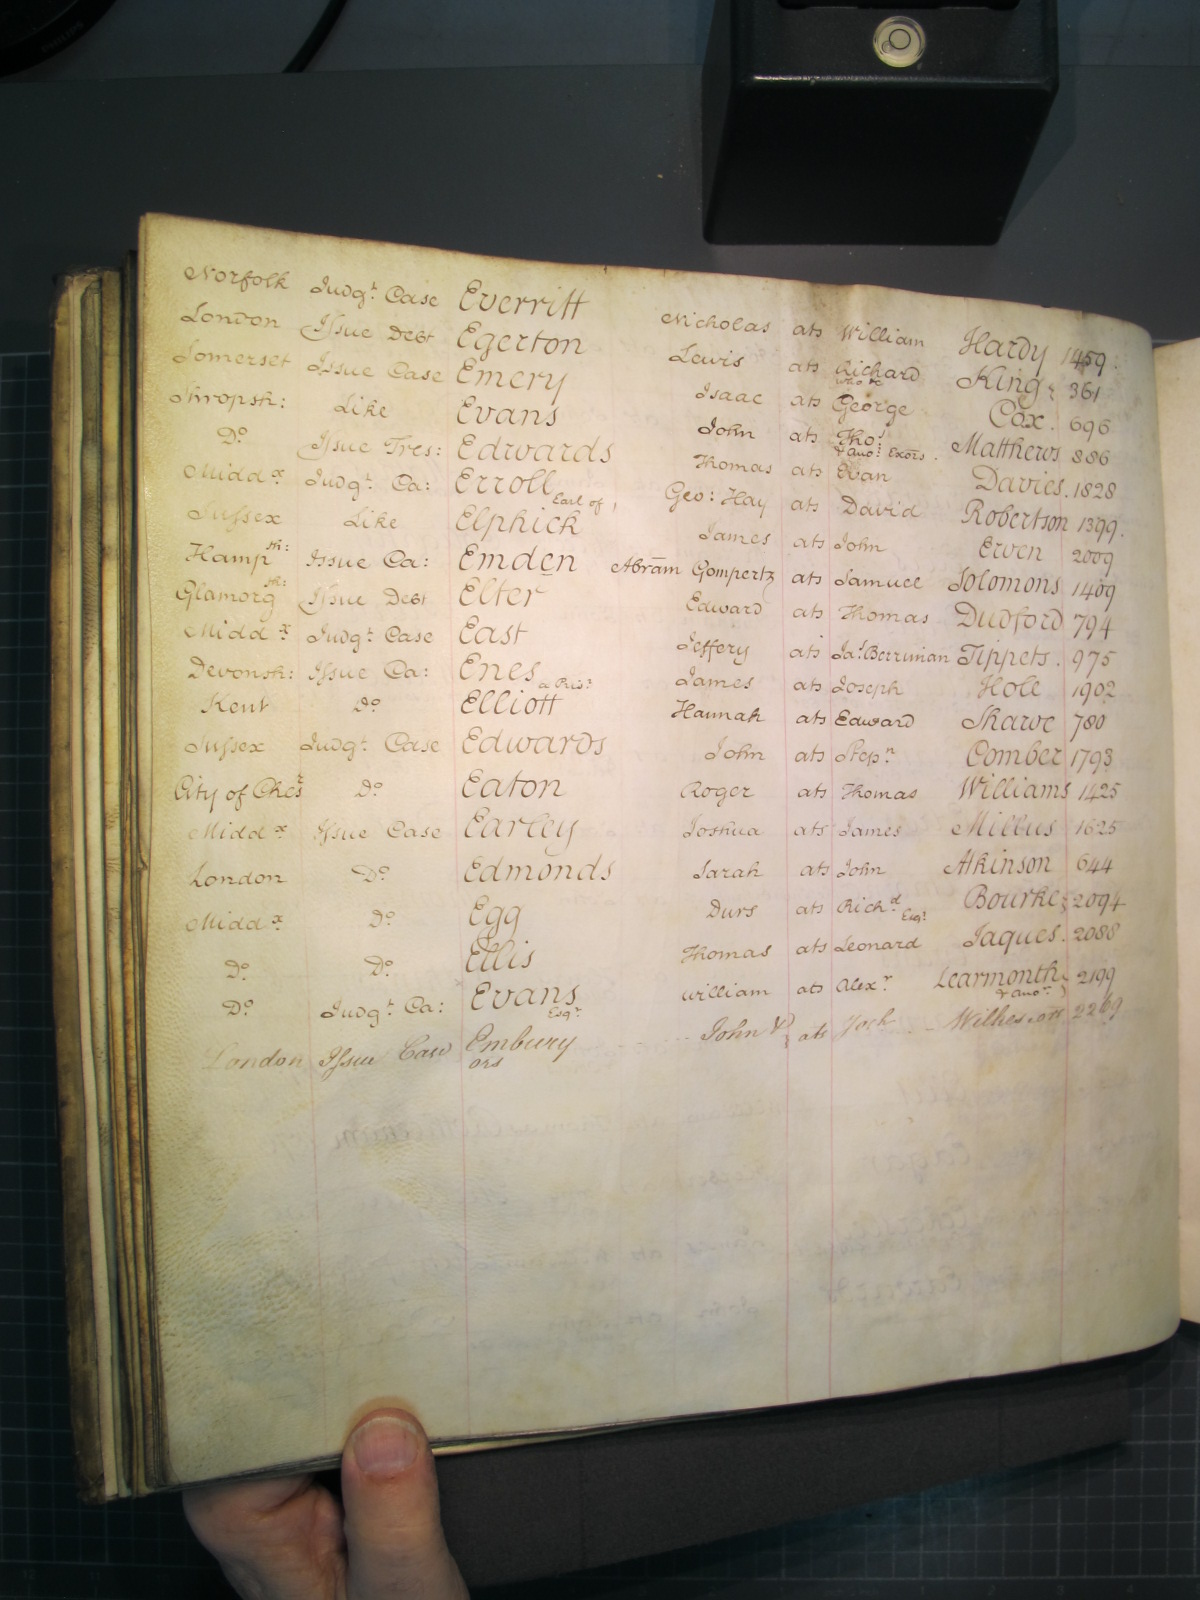 Norfolk Judgt. Case Everritt Nicholas ats William Hardy 1459.
London Issue Debt Egerton Lewis ats Richard King 361
who &c
Somerset Issue Case Emery Isaac ats George Cox. 696
Shropsh: Like Evans John ats Thos. Matthews 886
& anor. Exors.
Do. Issue Tres: Edwards Thomas ats Evan Davies. 1828
Middx Judgt. Ca: Erroll Earl of, Geo: Hay ats David Robertson 1399.
Sussex Like Elphick James ats John Erven 2009
Hampsh: Issue Ca: Emden Abrām Gompertz ats Samuel Solomons 1409
Glamorgsh: Issue Debt Elter Edward ats Thomas Dudford 794
Middx Judgt. Case East Jeffery ats Jas. Berriman Tippets. 975
Devonsh: Issue Ca: Enes a Prisr. James ats Joseph Hole 1902
Kent Do. Elliott Hannah ats Edward Shawe 780
Sussex Judgt. Case Edwards John ats Stepn. Comber 1793
City of Chesr Do. Eaton Roger ats Thomas Williams 1425
Middx Issue Case Earley Joshua ats James Millus 1625
London Do. Edmonds Sarah ats John Atkinson 644
Middx Do. Egg Durs ats Richd. Esqr. Bourke 2094
Do. Do. Ellis Thomas ats Leonard Jaques. 2088
Do. Judgt. Ca: Evans Esqr. William ats Alexr. Learmonth 2199
& anor.
London Issue Case Embury John & ats Wilkes 2269
ors